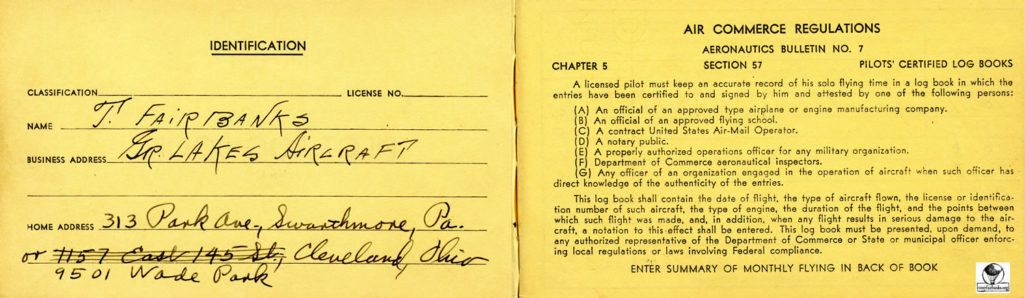 IDENTIFICATION
CLASSIFICATION LICENSE NO.
NAME T. FAIRBANKS
BUSINESS ADDRESS GR. LAKES AIRCRAFT
HOME ADDRESS 313 Park Ave., Swarthmore, Pa.
or 1157 East 145 St., Cleveland, Ohio
9501 Wade Park
AIR COMMERCE REGULATIONS
AERONAUTICS BULLETIN NO. 7
CHAPTER 5 SECTION 57 PILOTS' CERTIFIED LOG BOOKS
A licensed pilot must keep an accurate record of his solo flying time in a log book in which the
entries have been certified to and signed by him and attested by one of the following persons:
(A) An official of an approved type airplane or engine manufacturing company.
(B) An official of an approved flying school.
(C) A contract United States Air-Mail Operator.
(D) A notary public.
(E) A properly authorized operations officer for any military organization.
(F) Department of Commerce aeronautical inspectors.
(G) Any officer of an organization engaged in the operation of aircraft when such officer has
direct knowledge of the authenticity of the entries.
This log book shall contain the date of flight, the type of aircraft flown, the license or identifica-
tion number of such aircraft, the type of engine, the duration of the flight, and the points between
which such flight was made, and, in addition, when any flight results in serious damage to the air-
craft, a notation to this effect shall be entered. This log book must be presented, upon demand, to
any authorized representative of the Department of Commerce or State or municipal officer enforc-
ing local regulations or laws involving Federal compliance.
ENTER SUMMARY OF MONTHLY FLYING IN BACK OF BOOK